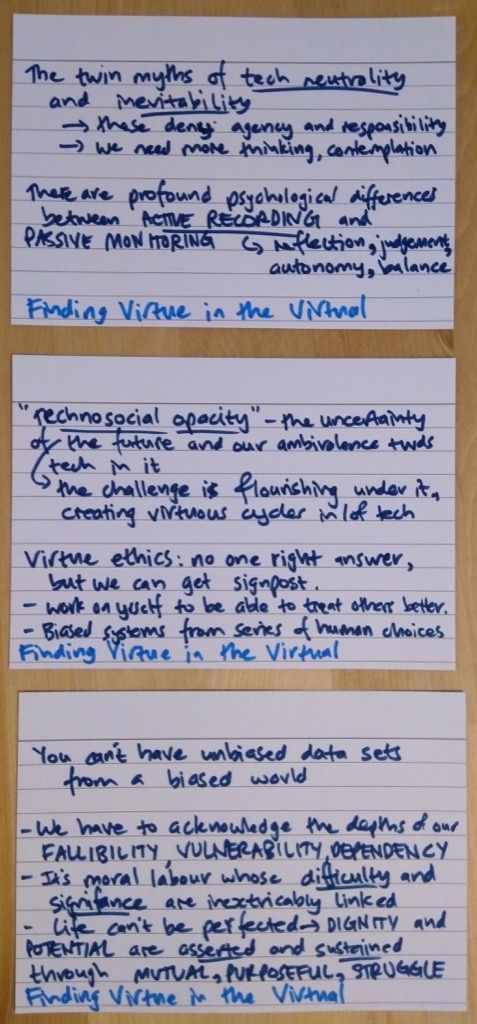 The twin myths of tech neutrality
and inevitability
→ these deny agency and responsibility
→ we need more thinking, contemplation
There are profound psychological differences
between ACTIVE RECORDING and
PASSIVE MONITORING ↳ reflection, judgement,
autonomy, balance
Finding Virtue in the Virtual
"Technosocial opacity" - the uncertainty
of the future and our ambivalence twds
tech in it
↳ the challenge is flourishing under it,
creating virtuous cycles in/of tech
Virtue ethics: no one right answer,
but we can get signpost.
- work on yrself to be able to treat others better.
- Biased systems from series of human choices
Finding Virtue in the Virtual
You can't have unbiased data sets
from a biased world
- We have to acknowledge the depths of our
FALLIBILITY, VULNERABILITY, DEPENDENCY
- It's moral labour whose difficulty and
signifance are inextricably linked
- Life can't be perfected → DIGNITY and
POTENTIAL are asserted and sustained
through MUTUAL, PURPOSEFUL, STRUGGLE
Finding Virtue in the Virtual